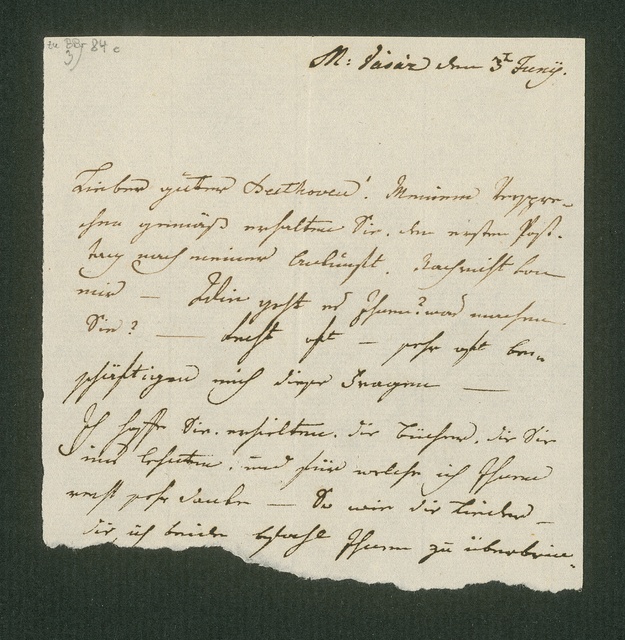 zu BBr 84 c
3)
M: Vásár den 3t Juny.
Lieber guter Beethoven! Meinem Verspre-
chen gemäß erhalten Sie, den ersten Post-
tag nach meiner Ankunft, Nachricht von
mir — Wie geht es Ihnen? was machen
Sie? — recht oft — sehr oft be-
schäftigen mich diese Fragen —
Ich hoffe Sie erhielten die Bücher, die Sie
uns liehen, und für welche ich Ihnen
recht sehr danke — So wie die Lieder —
die ich beide befahl Ihnen zu überbrin-